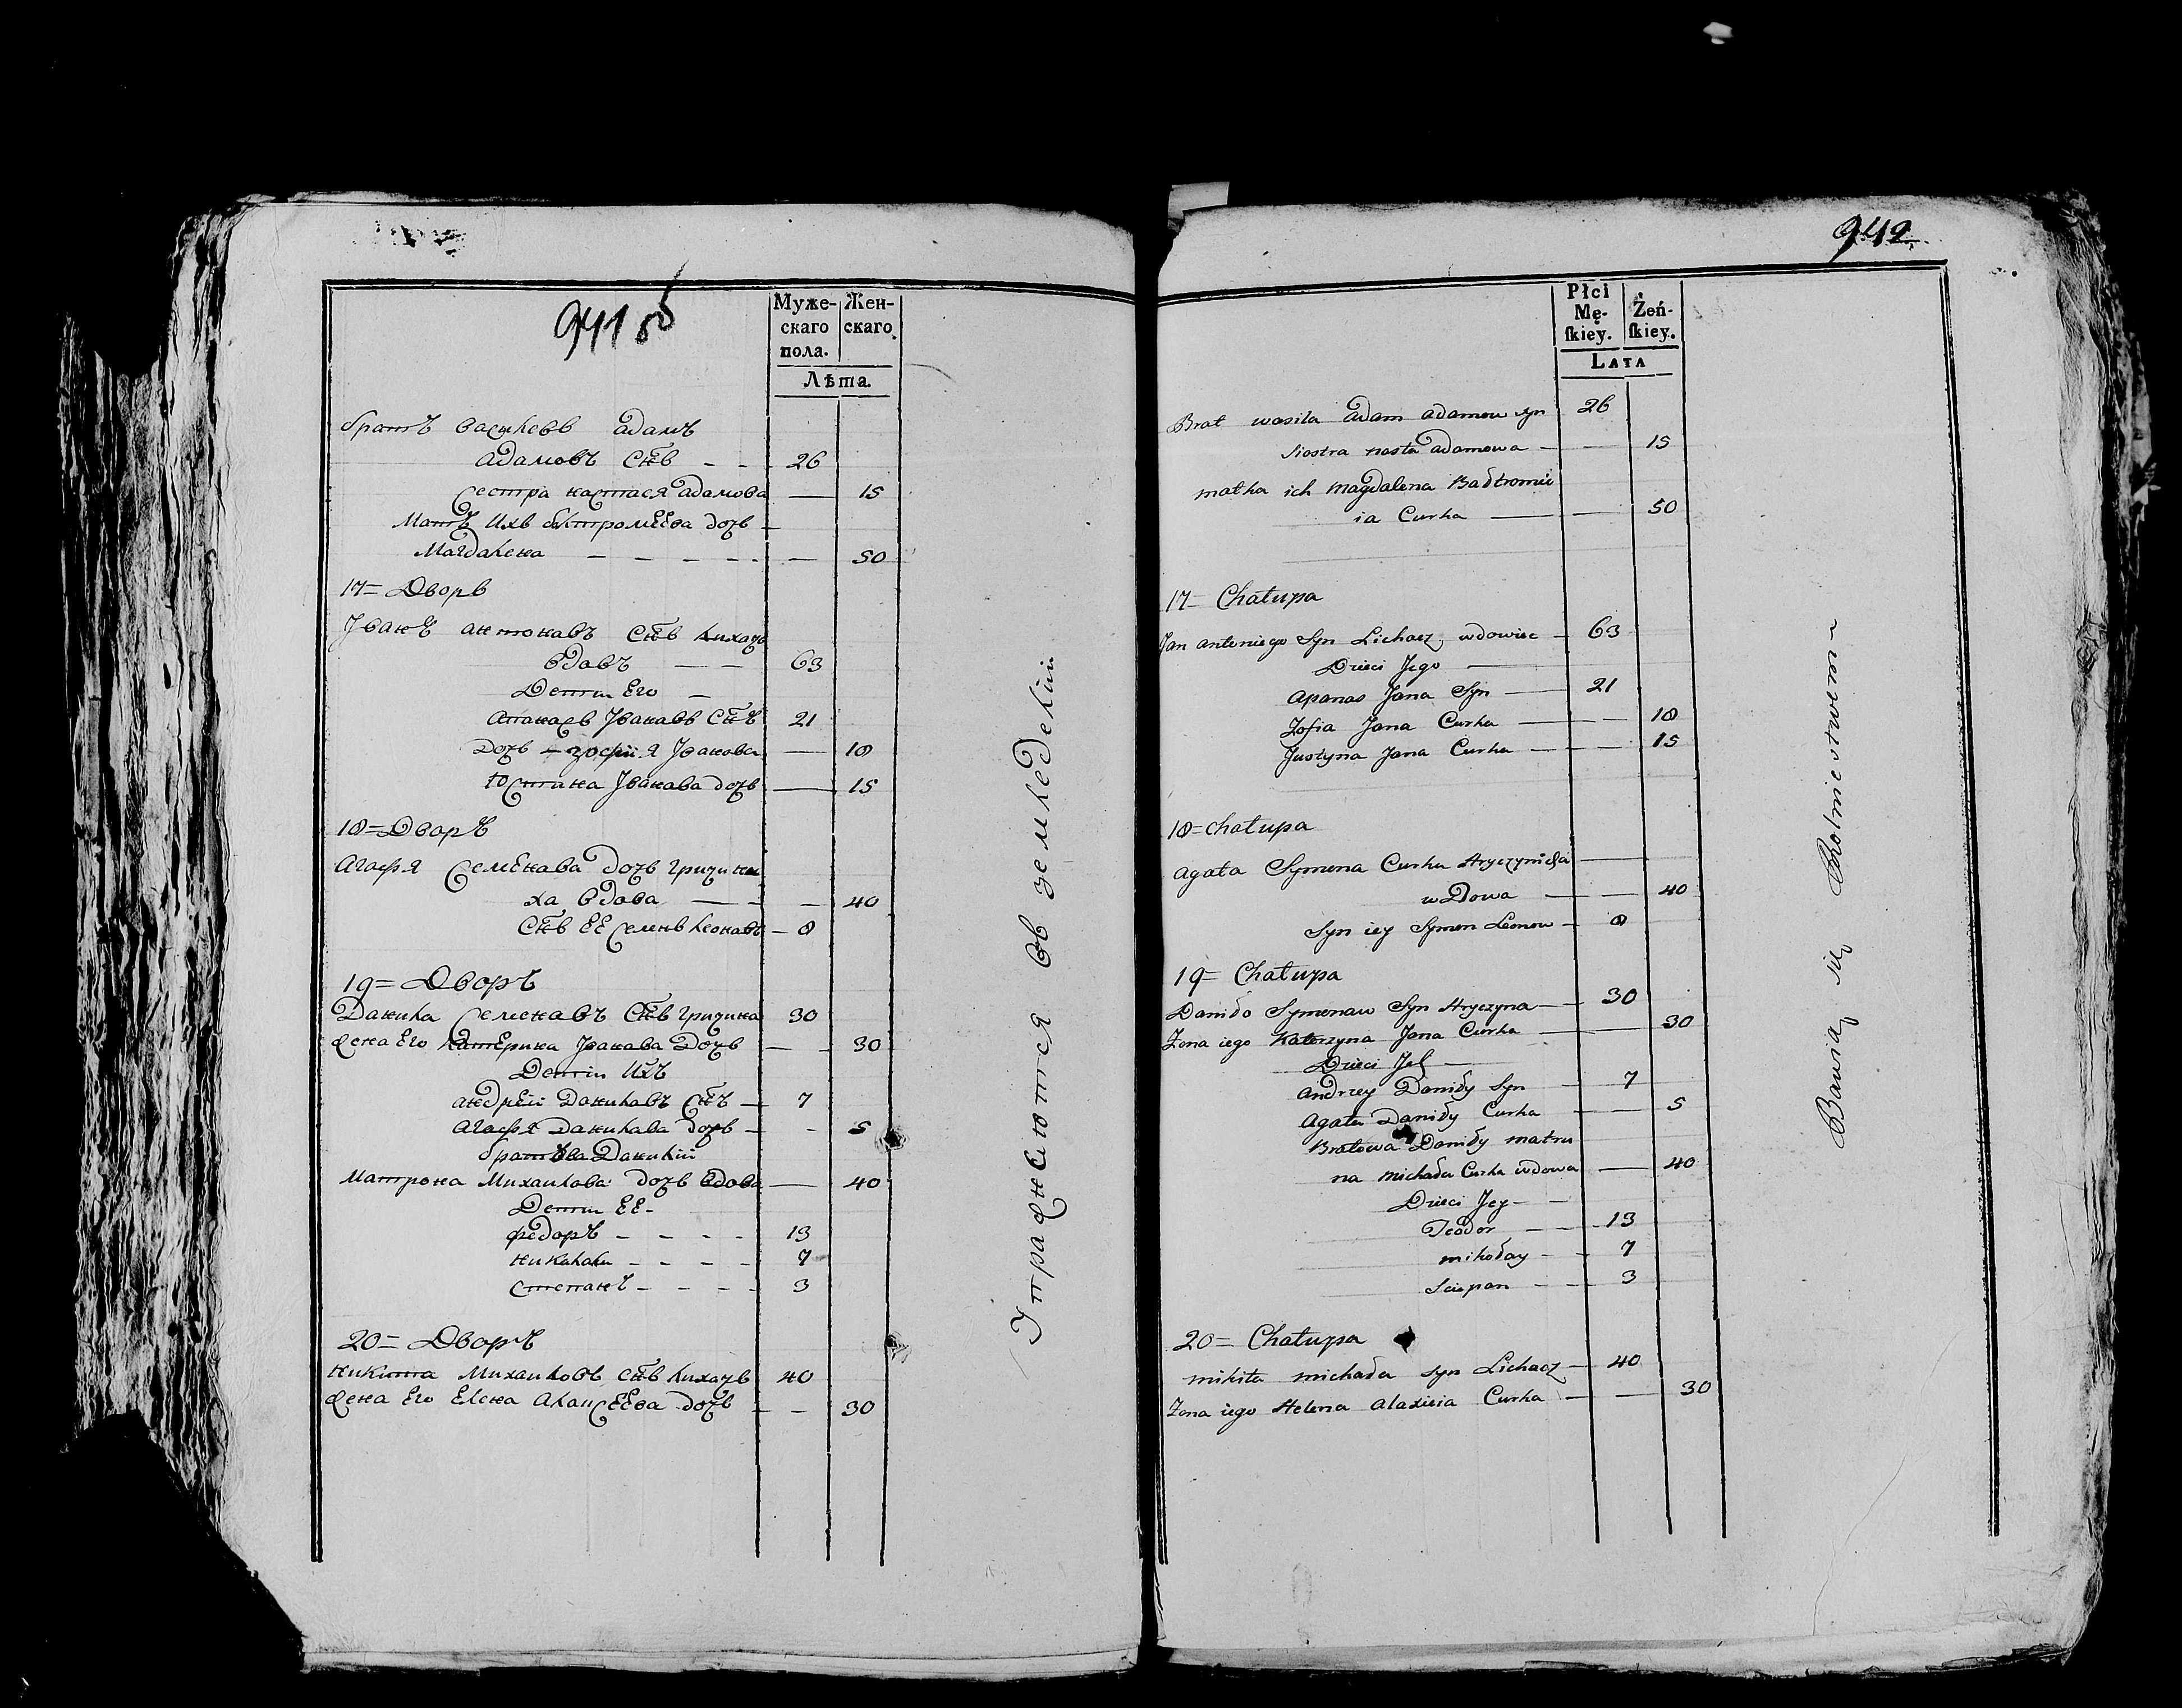 941 об
Муже- Жен-
скаго скаго
пола.
Лѣта.
братъ василевъ адамъ
адамовъ снъ 26
сестра настася адамова 15
Мать ихъ бахтромѣева дочь
Магдалена 50
17= Дворъ
Јванъ антонавъ снъ лихачъ
вдавъ 63
Дети его
апанасъ Јванавъ снъ 21
дочь зофия Јванова 18
юстина Јванава дочь 15
18= Дворъ
агафя семёнава дочь гричини
ха вдова 40
снъ ее семенъ леонавъ 8
19= Дворъ
Данила семенавъ снъ гричина 30
жена его катерина Јванава дочь 30
Дети ихъ
андрей данилавъ снъ 7
агафя данилава дочь 5
братова Данилы
матрона Михаилова дочь вдова 40
Дети ее
федоръ 13
николай 7
степанъ 3
20= Дворъ
никита Михаиловъ снъ лихачъ 40
жена его Елена алаисеева дочь 30
Упражнсются въ земледелии
942
Płci Żeń-
Mę- ſkiey.
ſkiey.
LATA
Brat wasila adam adamow syn 26
siostra nasta adamowa 15
matka ich magdalena Bałtromie
ia Curka 50
17= Chałupa
Jan anteniego Syn Lichacz wdowiec 63
Dzieci Jego
apanas Jana Syn 21
Zofia Jana Curka 18
Justyna Jana Curka 15
18= chałupa
agata Symona Curka Hryczynicha
wdowa 40
Syn iey Symon Leonow 8
19= Chałupa
Daniło Symonaw Syn Hryczyna 30
Żona iego Katerzyna Jana Curka 30
Dzieci Jch
andrzey Daniły Syn 7
agata Daniły Curka 5
Bratowa Daniły matru
na michała Curka wdowa 40
Dzieci Jey
Teodor 13
mikołay 7
Sciepan 3
20= Chałupa
mikita michała syn Lichacz 40
Żona iego Helena alaxieia Curka 30
Bawią się Rolnictwem